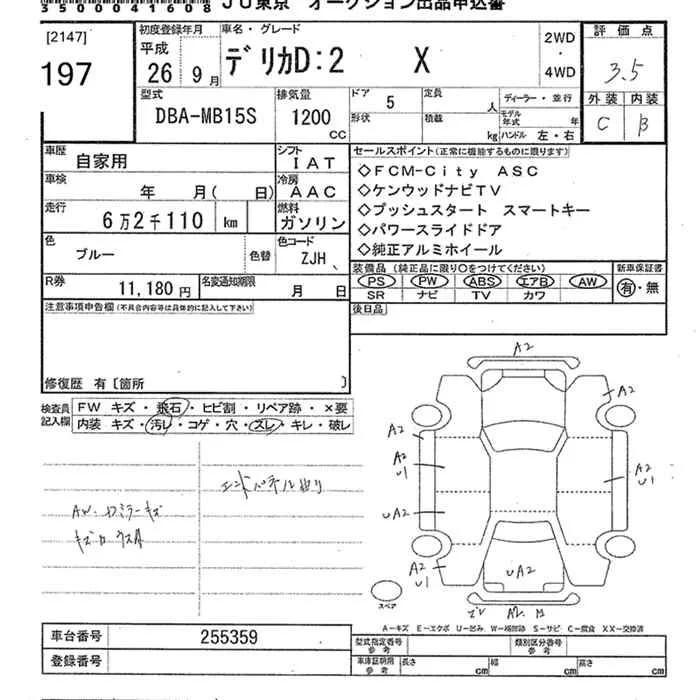 3500041608 JU東京 オークション出品申込書
[2147]
197
初度登録年月
平成
26年 9月
車名・グレード
デリカD:2 X
2WD
・
4WD
評価点
3.5
外装 内装
C B
型式
DBA-MB15S
排気量
1200
CC
ドア 5
定員 人
形状
積載 kg
ディーラー・並行
モデル年式 年
ハンドル 左・右
車歴
自家用
シフト
IAT
車検
年 月( 日)
冷房
AAC
走行
6万2千110 km
燃料
ガソリン
色
ブルー
色替
色コード
ZJH、
R券
11,180円
名変通知期限
月 日
セールスポイント(正常に機能するものに限ります)
◇FCM-City ASC
◇ケンウッドナビTV
◇プッシュスタート スマートキー
◇パワースライドドア
◇純正アルミホイール
装備品(純正品に限り○をつけてください)
新車保証書
PS PW ABS エアB AW
有・無
SR ナビ TV カワ
後日品
注意事項申告欄(不具合内容等は具体的に記入して下さい)
修復歴 有〔箇所 〕
検査員
記入欄
FW キズ・飛石・ヒビ割・リペア跡・×要
内装 キズ・汚レ・コゲ・穴・スレ・キレ・破レ
AW・ドミラーキズ
A2
A2
A2
A2
U1
UA2
A2
U1
A2
U1
UA2
スペア
A-キズ E-エクボ U-凹み W-補修跡 S-サビ C-腐食 XX-交換済
車台番号 255359
登録番号
型式指定番号
参考
類別区分番号
参考
車庫証明用
参考
長さ cm
幅 cm
高さ cm